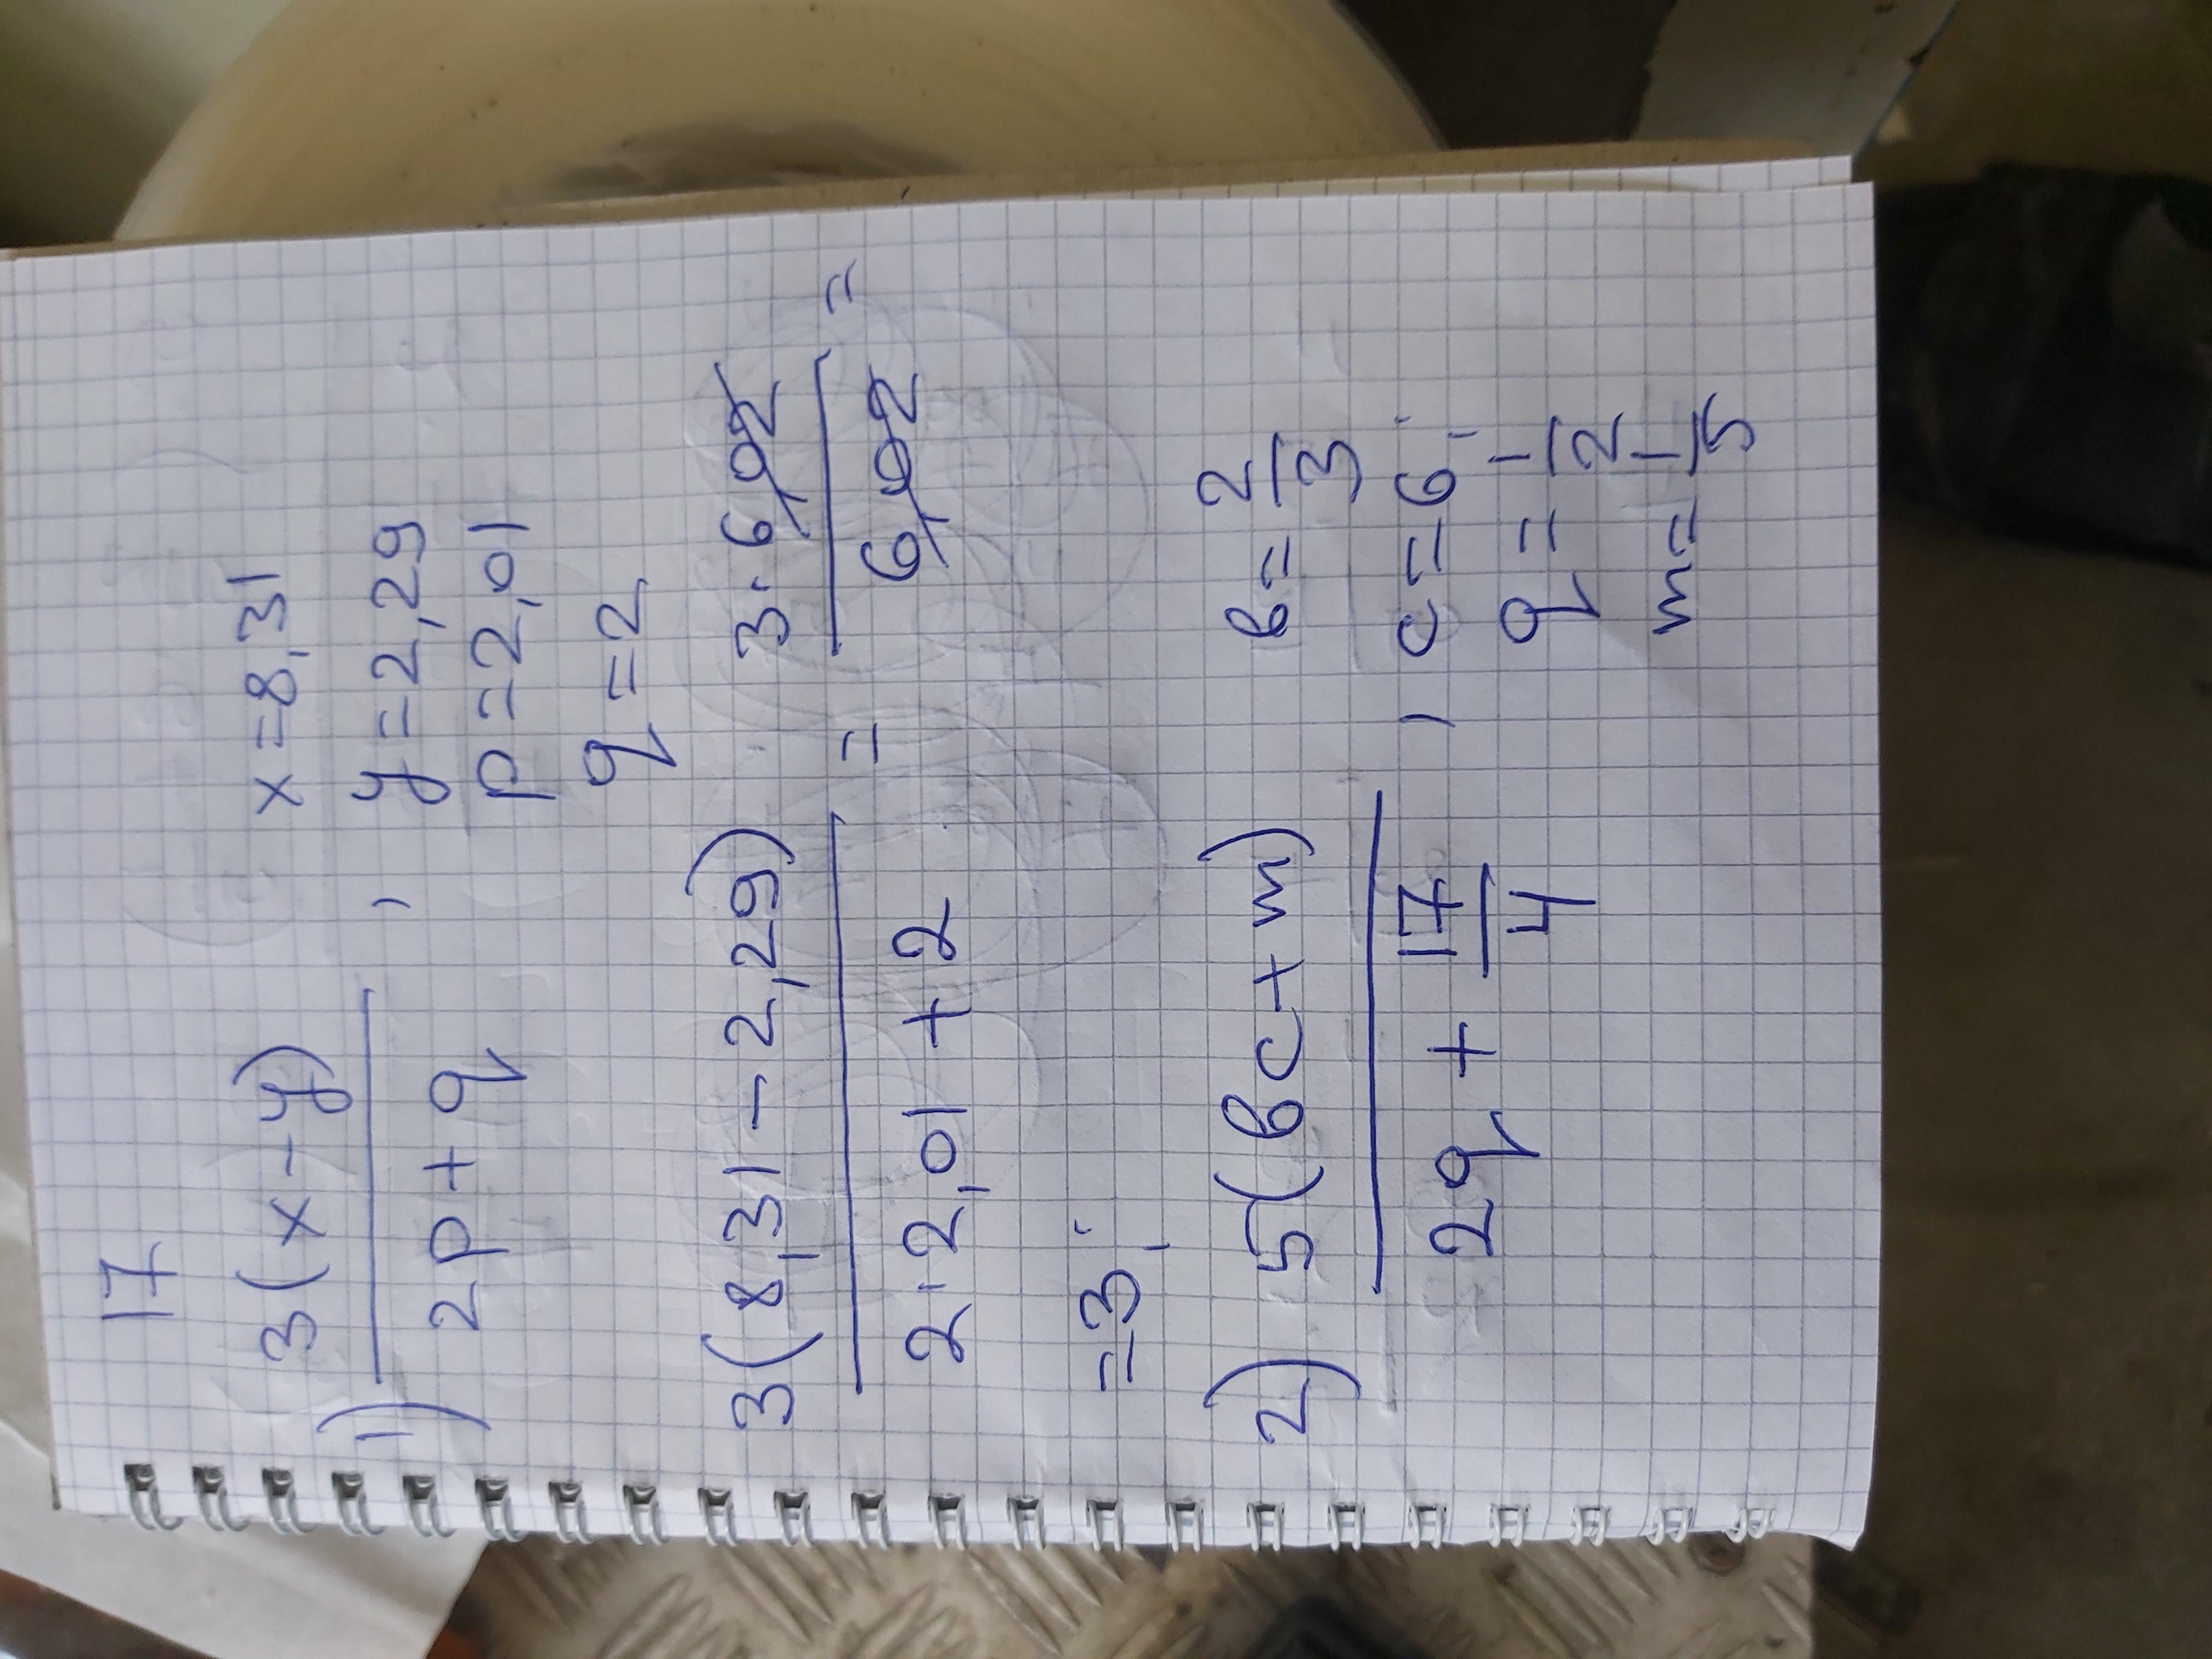 17
1) 3(x-y) / 2p+q , x=8,31
y=2,29
p=2,01
q=2
3(8,31-2,29) / 2·2,01+2 = 3·6,02 / 6,02 =
=3;
2) 5(bc+m) / 2q + 17/4 , b=2/3
c=6;
q=1/2
m=1/5